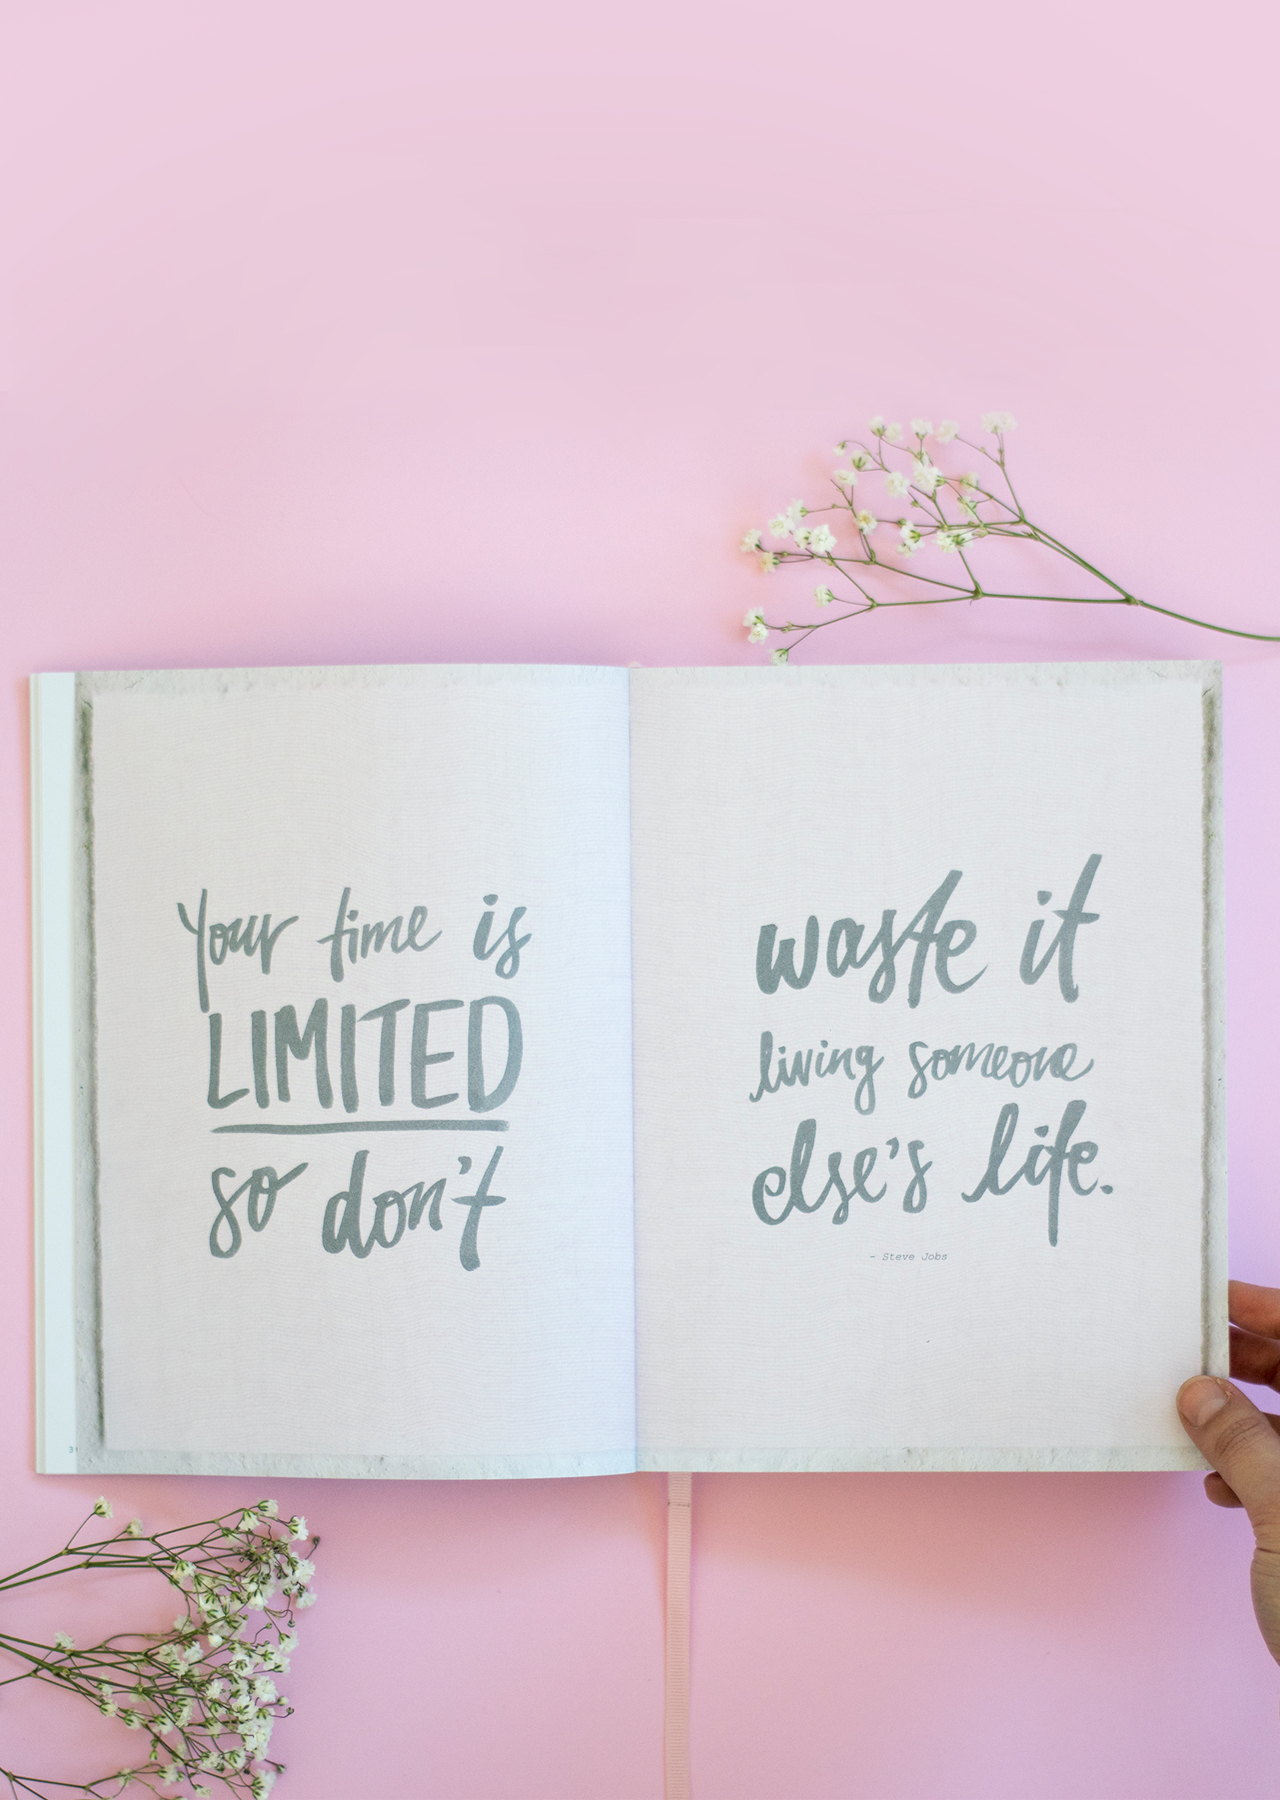 Your time is
LIMITED
so don't
waste it
living someone
else's life.
- Steve Jobs